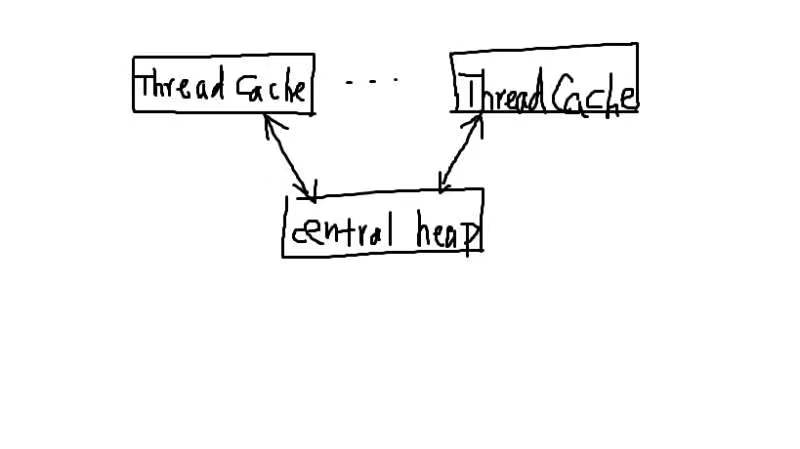 Thread Cache ... Thread Cache
central heap